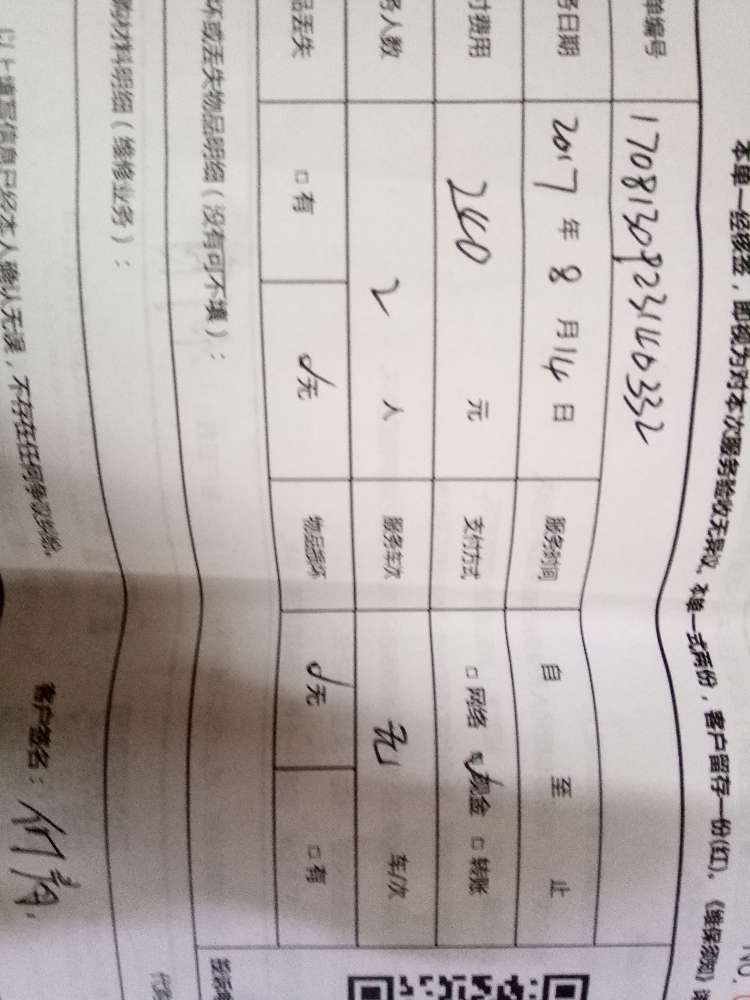 本单一经移签，即视为对本次服务验收无异议。本单一式两份，客户留存一份(红)。《维保须知》
NO.
单编号 1708130823140332
务日期 2017 年 8 月 14 日 服务时间 自 至 止
付费用 240 元 支付方式 □ 网络 ☑ 现金 □ 转账
务人数 2 人 服务车次 无 车/次
品丢失 □ 有 √ 无 物品损坏 √ 无 □ 有
坏或丢失物品明细（没有可不填）：
购材料明细（维修业务）：
以上填写信息已经本人确认无误，不存在任何争议纠纷。
客户签名：